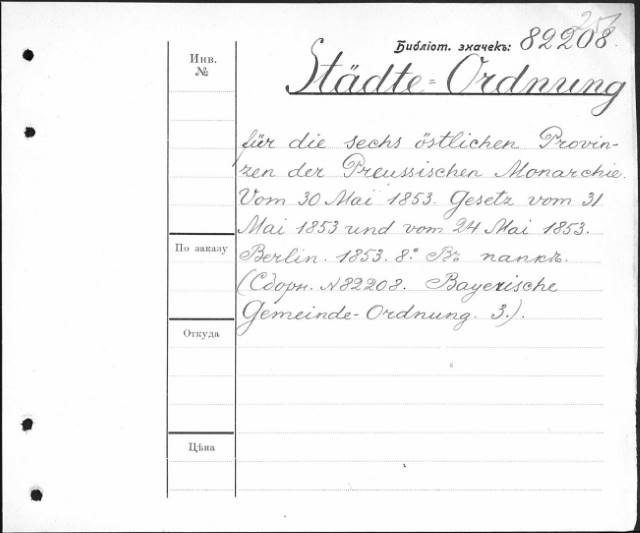 Библіот. значекъ: 82208.
Инв.
№
Städte=Ordnung
für die sechs östlichen Provin-
zen der Preussischen Monarchie.
Vom 30 Mai 1853. Gesetz vom 31
Mai 1853 und vom 24 Mai 1853.
По заказу
Berlin. 1853. 8.º Въ папкѣ.
(Сборн. N82208. Bayerische
Gemeinde-Ordnung. 3.).
Откуда
Цѣна